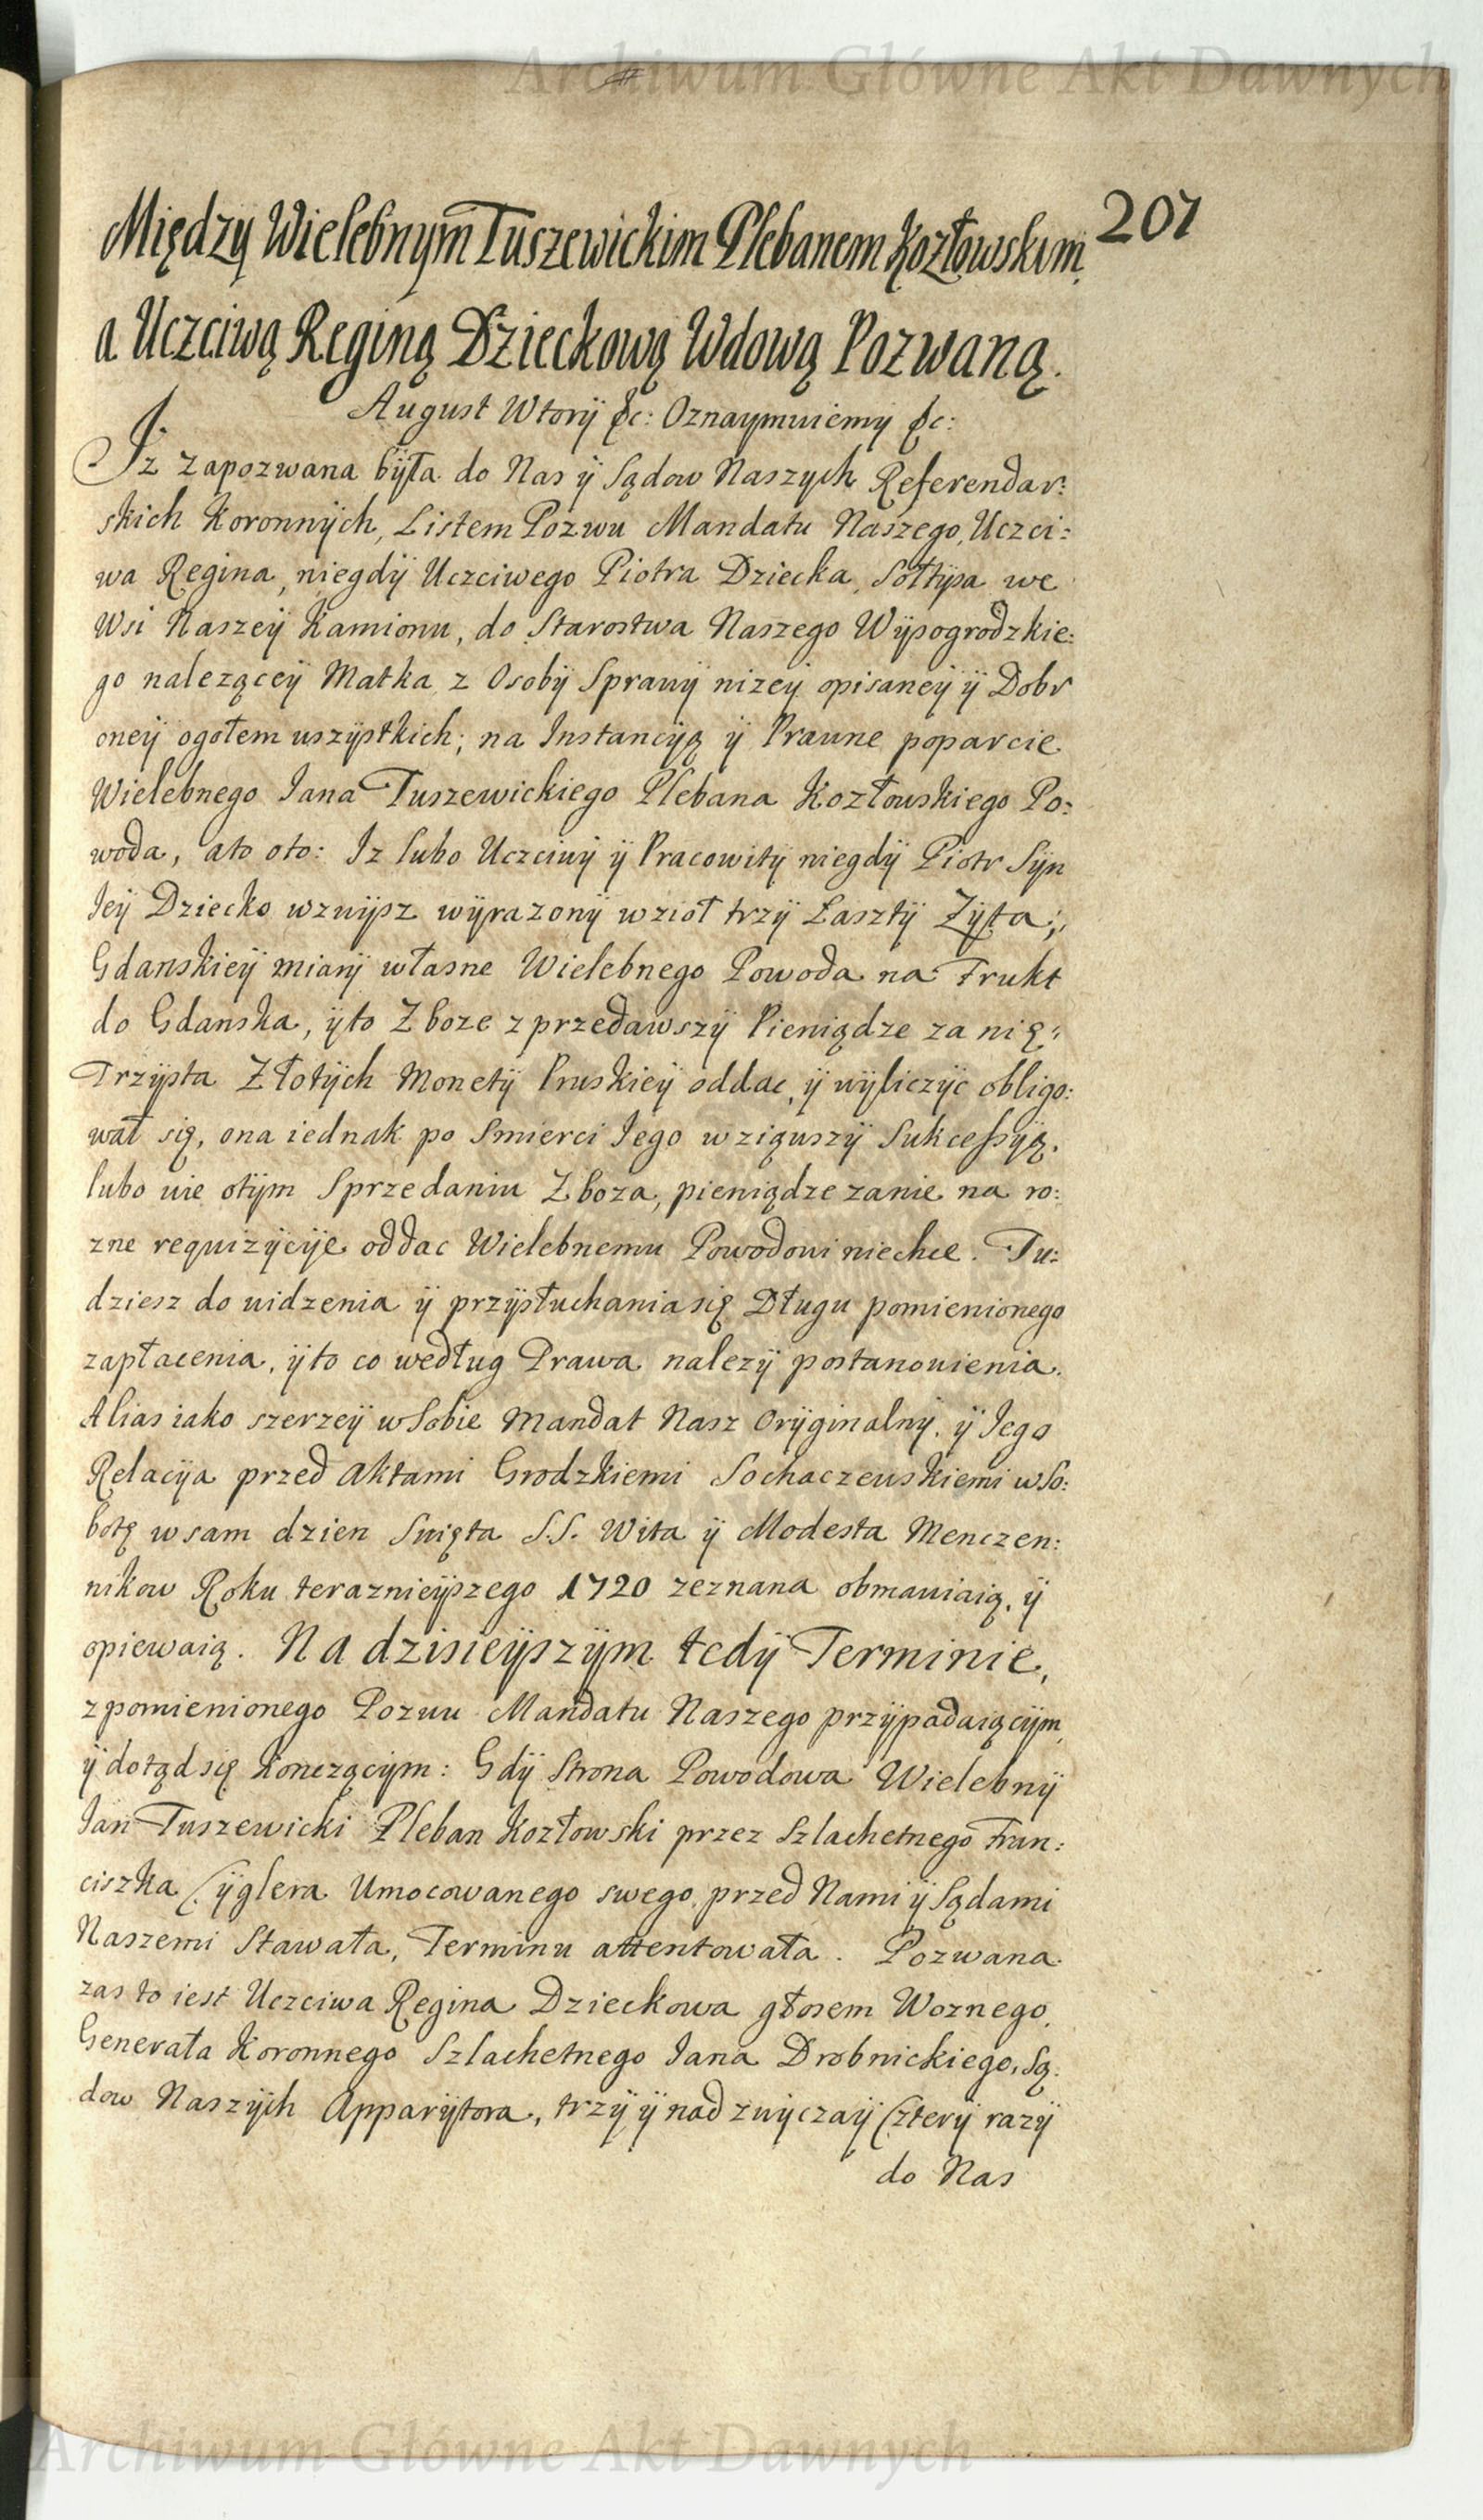 Archiwum Główne Akt Dawnych
207
Między Wielebnym Tuszewickim Plebanem Kozłowskim,
a Uczciwą Reginą Dzieckową Wdową Pozwaną.
August Wtorÿ &c: Oznaymuiemy &c:
Jz zapozwana bÿła do Nas ÿ Sądow Naszych Referendar:
skich Koronnÿch, Listem Pozwu Mandatu Naszego, Uczci:
wa Regina, niegdÿ Uczciwego Piotra Dziecka, Sołtÿsa we
Wsi Naszeÿ Kamionu, do Starostwa Naszego Wÿsogrodzkie:
go naleząceÿ Matka z Osobÿ Sprawÿ nizeÿ opisaneÿ ÿ Dobr
oneÿ ogołem wszÿstkich; na Instancÿą ÿ Prawne poparcie
Wielebnego Jana Tuszewickiego Plebana Kozłowskiego Po:
woda, ato oto: Iz lubo Uczciwÿ ÿ Pracowitÿ niegdÿ Piotr Sÿn
Jeÿ Dziecko wzwÿsz wÿrazonÿ wzioł trzÿ Łasztÿ Zÿta;
Gdanskieÿ miarÿ własne Wielebnego Powoda na Frukt
do Gdanska, ÿto Zboze zprzedawszÿ Pieniądze za nię:
Trzÿsta Złotÿch Monetÿ Pruskieÿ oddac, ÿ wÿliczÿc obligo:
wał się, ona iednak po Smierci Jego wziąwszÿ Sukcessÿą.
lubo wie otÿm Sprzedaniu Zboza, pieniądze zanie na ro:
zne requizÿcÿe oddac Wielebnemu Powodowi niechce. Tu:
dziesz do widzenia ÿ przÿsłuchania się Długu pomienionego
zapłacenia, ÿto co według Prawa nalezÿ postanowienia.
Alias iako szerzeÿ wSobie Mandat Nasz Orÿginalnÿ, ÿ Jego
Relacÿa przed Aktami Grodzkiemi Sochaczewskiemi wSo:
botę wsam dzien Swięta S.S. Wita ÿ Modesta Menczen:
nikow Roku teraznieÿszego 1720 zeznana obmawiaią, ÿ
opiewaią. Na dzisieÿszÿm tedÿ Terminie,
zpomienionego Pozwu Mandatu Naszego przÿpadaiącÿm
ÿ dotąd się konczącÿm: Gdÿ Strona Powodowa Wielebnÿ
Jan Tuszewicki Pleban Kozłowski przez Szlachetnego Fran:
ciszka Cÿglera Umocowanego swego przed Nami ÿ Sądami
Naszemi Stawała, Terminu attentowała. Pozwana
zas to iest Uczciwa Regina Dzieckowa głosem Woznego
Generała Koronnego Szlachetnego Jana Drobnickiego, Są:
dow Naszÿch Apparÿtora, trzÿ ÿ nad zwÿczaÿ Czterÿ razÿ
do Nas
Archiwum Główne Akt Dawnych